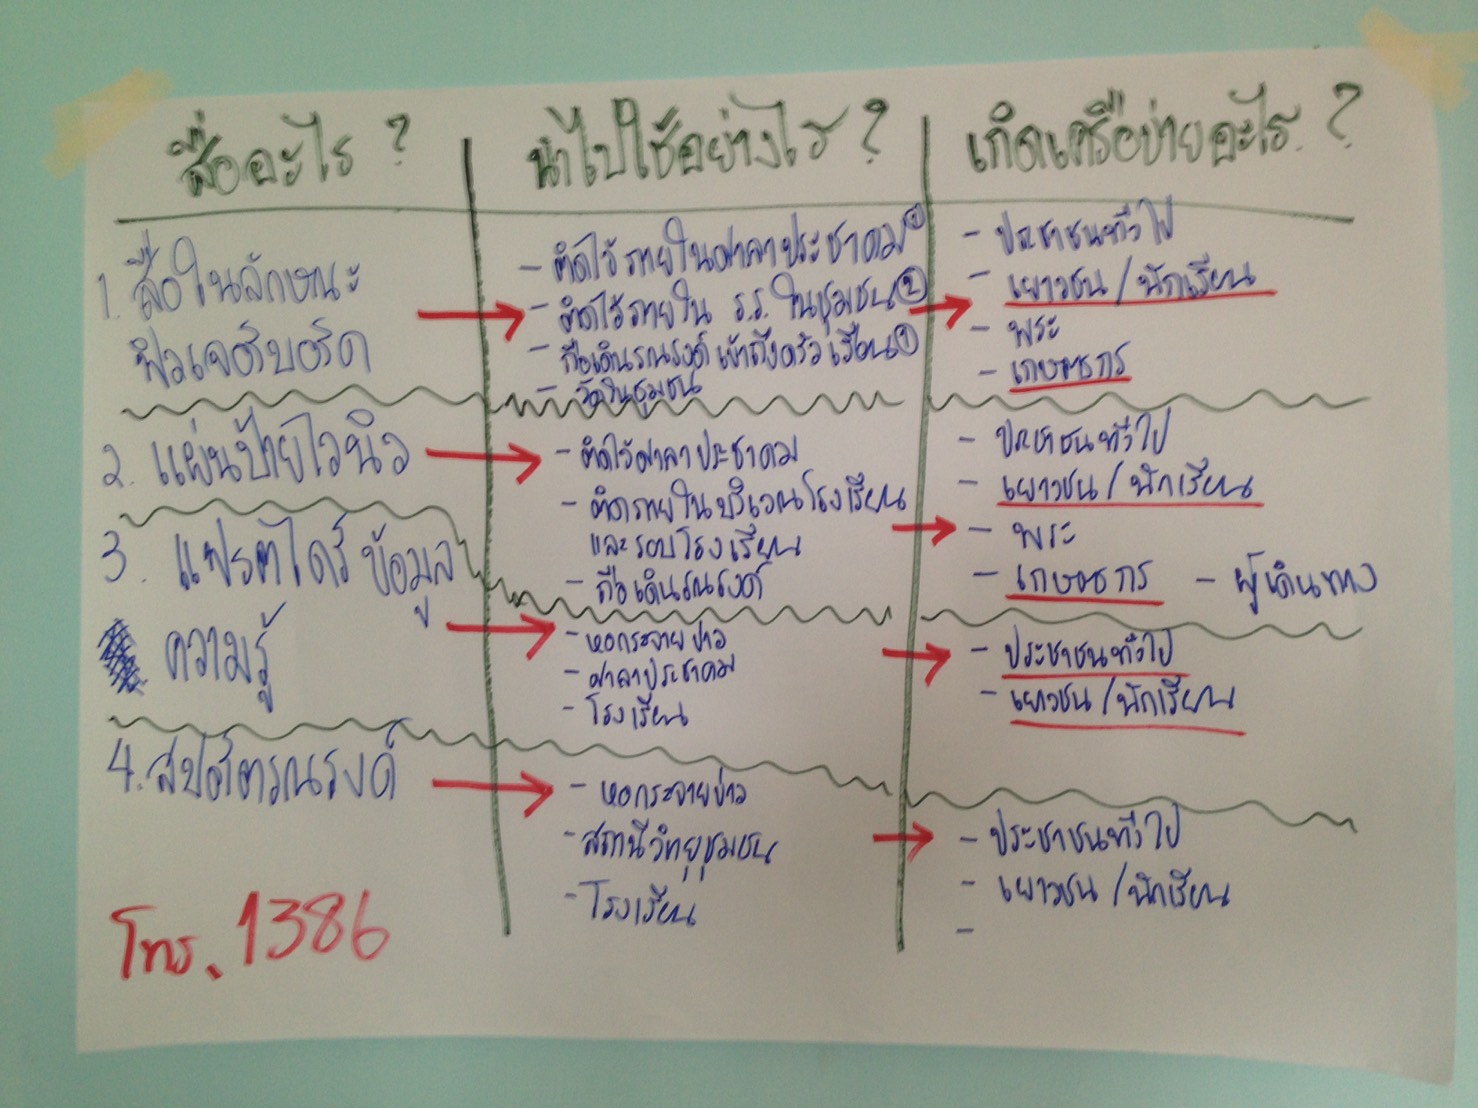 สื่ออะไร ?
นำไปใช้อย่างไร ?
เกิดเครือข่ายอะไร ?
1. สื่อในลักษณะ
ฟิวเจอร์บอร์ด
- ติดไว้ภายในศาลาประชาคม
- ติดไว้ภายใน ร.ร. ในชุมชน ②
- ถือเดินรณรงค์เข้าถึงครัวเรือน
- วัดในชุมชน
- ประชาชนทั่วไป
- เยาวชน/นักเรียน
- พระ
- เกษตรกร
2. แผ่นป้ายไวนิว
- ติดไว้ศาลาประชาคม
- ติดภายในบริเวณโรงเรียน
และรอบโรงเรียน
- ถือเดินรณรงค์
- ประชาชนทั่วไป
- เยาวชน/นักเรียน
- พระ
- เกษตรกร - ผู้เดินทาง
3. แฟรตไดร์ ข้อมูล
ความรู้
- หอกระจายข่าว
- ศาลาประชาคม
- โรงเรียน
- ประชาชนทั่วไป
- เยาวชน/นักเรียน
4. สปอตรณรงค์
- หอกระจายข่าว
- สถานีวิทยุชุมชน
- โรงเรียน
- ประชาชนทั่วไป
- เยาวชน/นักเรียน
-
โทร. 1386